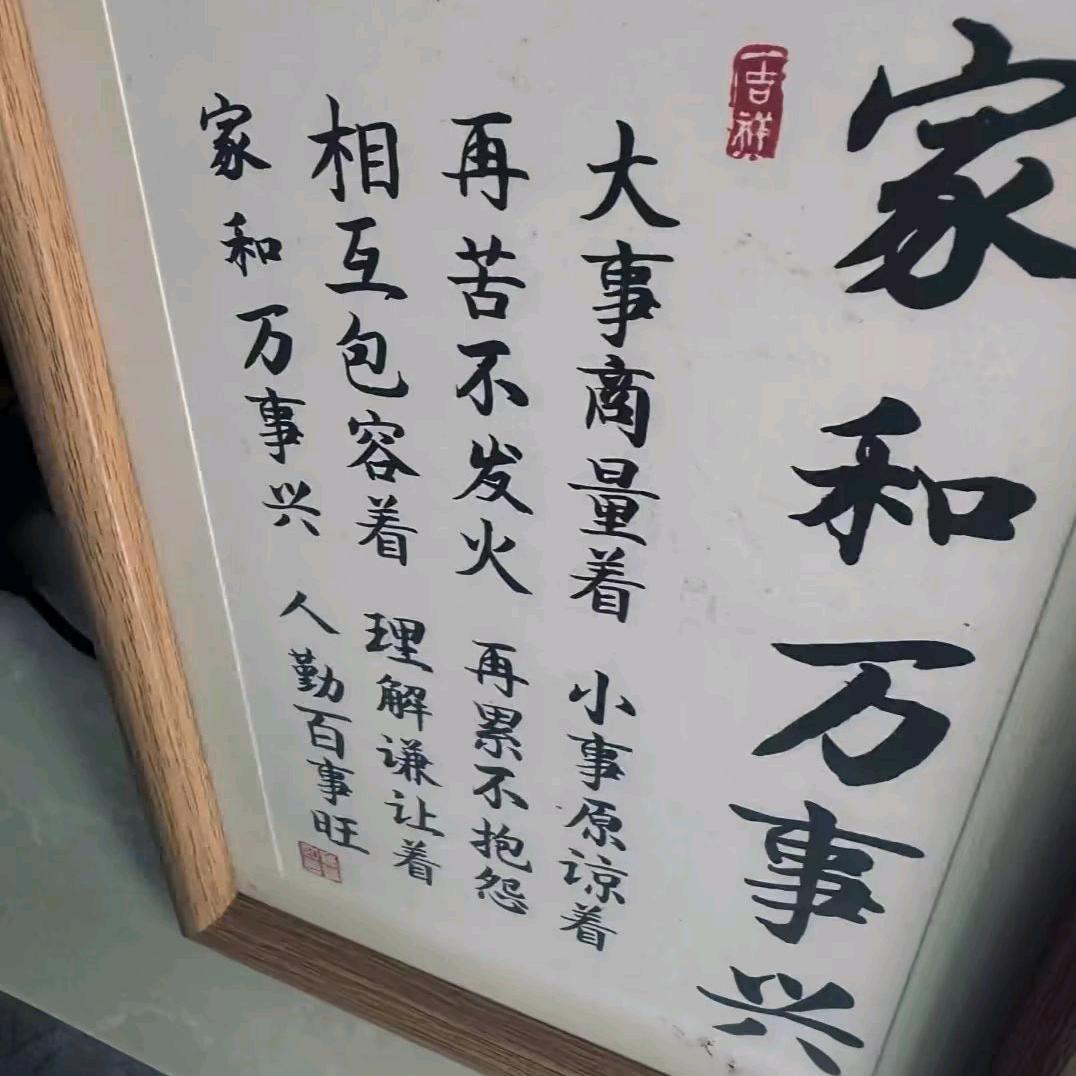 家和万事兴
吉祥
大事商量着 小事原谅着
再苦不发火 再累不抱怨
相互包容着 理解谦让着
家和万事兴 人勤百事旺